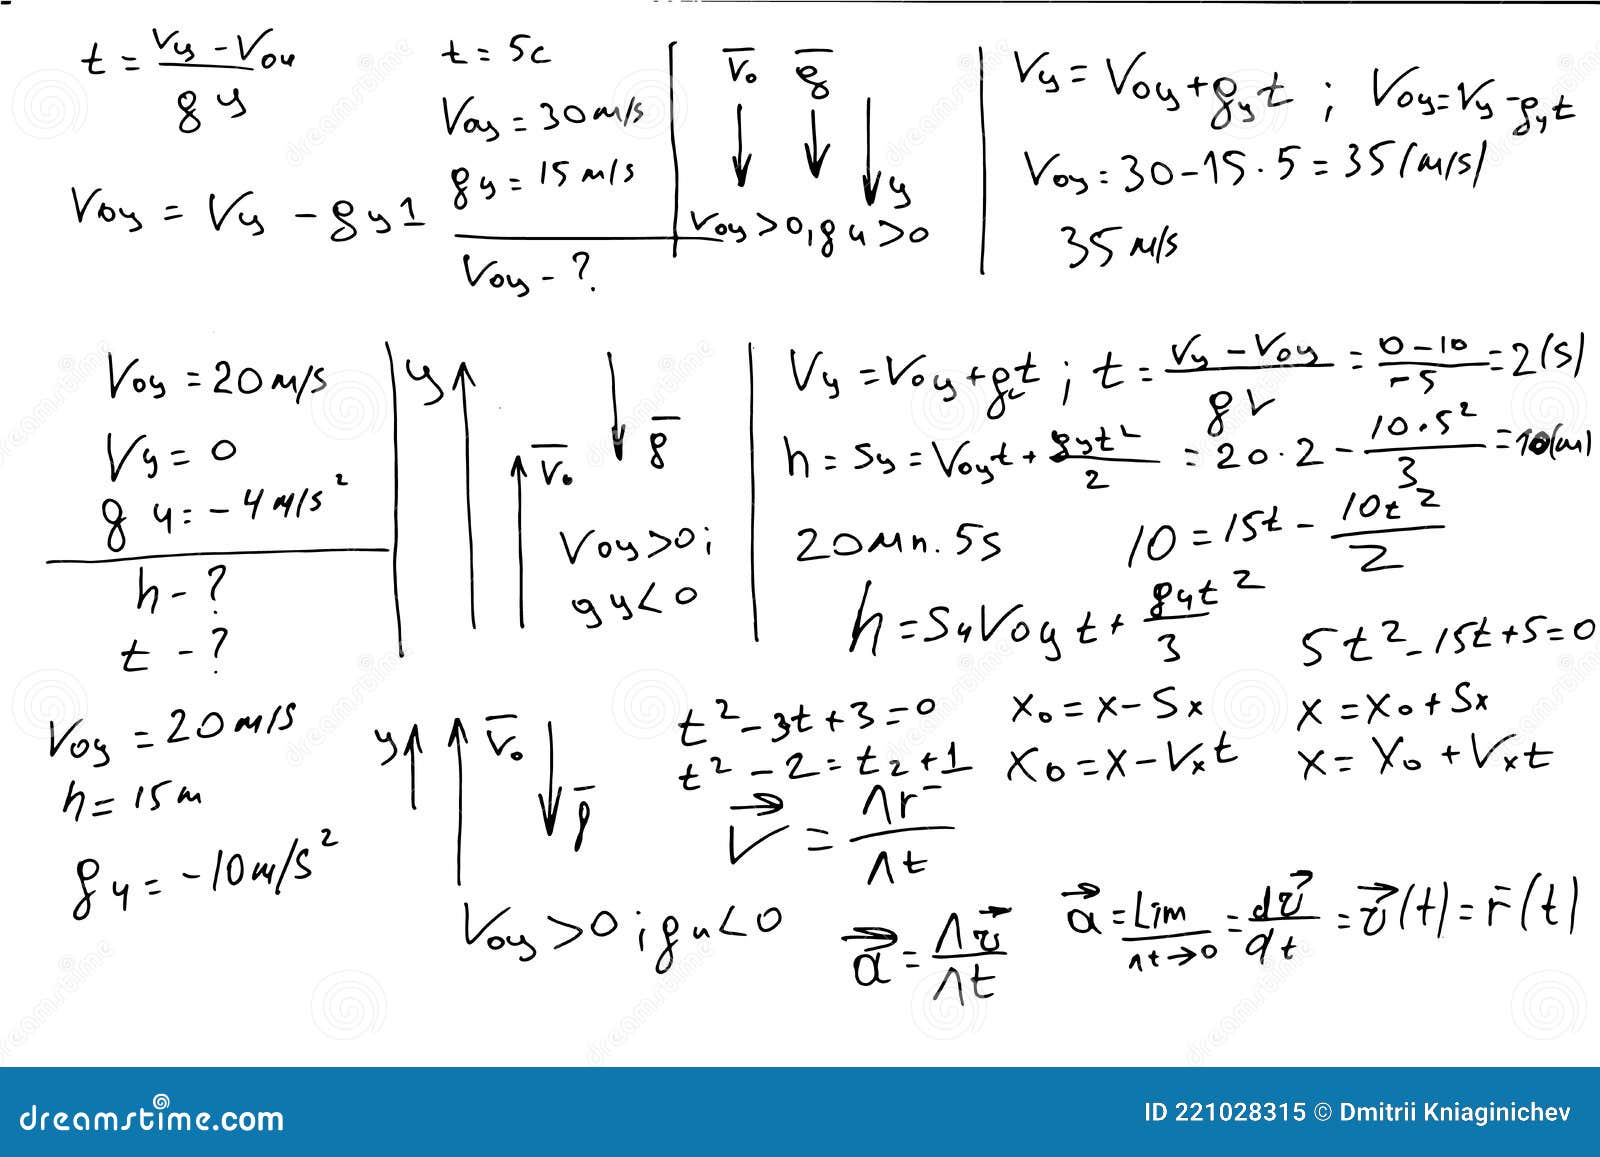 t = (Vy - Voy) / gy
Voy = Vy - gy1
t = 5c
Voy = 30 m/s
gy = 15 m/s
Voy - ?
V̅o g̅
y
Voy > 0, gy > 0
Vy = Voy + gyt ; Voy = Vy - gyt
Voy = 30 - 15 · 5 = 35 (m/s)
35 m/s
Voy = 20 m/s
Vy = 0
gy = -4 m/s²
h - ?
t - ?
y
V̅o g̅
Voy > 0 ;
gy < 0
Vy = Voy + gt ; t = (Vy - Voy) / g = (0 - 10) / -5 = 2 (s)
h = Sy = Voyt + gyt² / 2 = 20 · 2 - 10 · 5² / 3 = 10 (m)
20 5s
10 = 15t - 10t² / 2
h = Sy Voy t + gyt² / 3
5t² - 15t + 5 = 0
Voy = 20 m/s
h = 15 m
gy = -10 m/s²
y V̅o g̅
Voy > 0 ; gy < 0
t² - 3t + 3 = 0
t² - 2 = t₂ + 1
V⃗ = Λr̅ / Λt
a⃗ = Λv⃗ / Λt
Xo = X - Sx
Xo = X - Vxt
X = Xo + Sx
X = Xo + Vxt
a⃗ = Lim / Λt→0 = dv⃗ / dt = v⃗(t) = r̅(t)
dreamstime.com
ID 221028315 © Dmitrii Kniaginichev